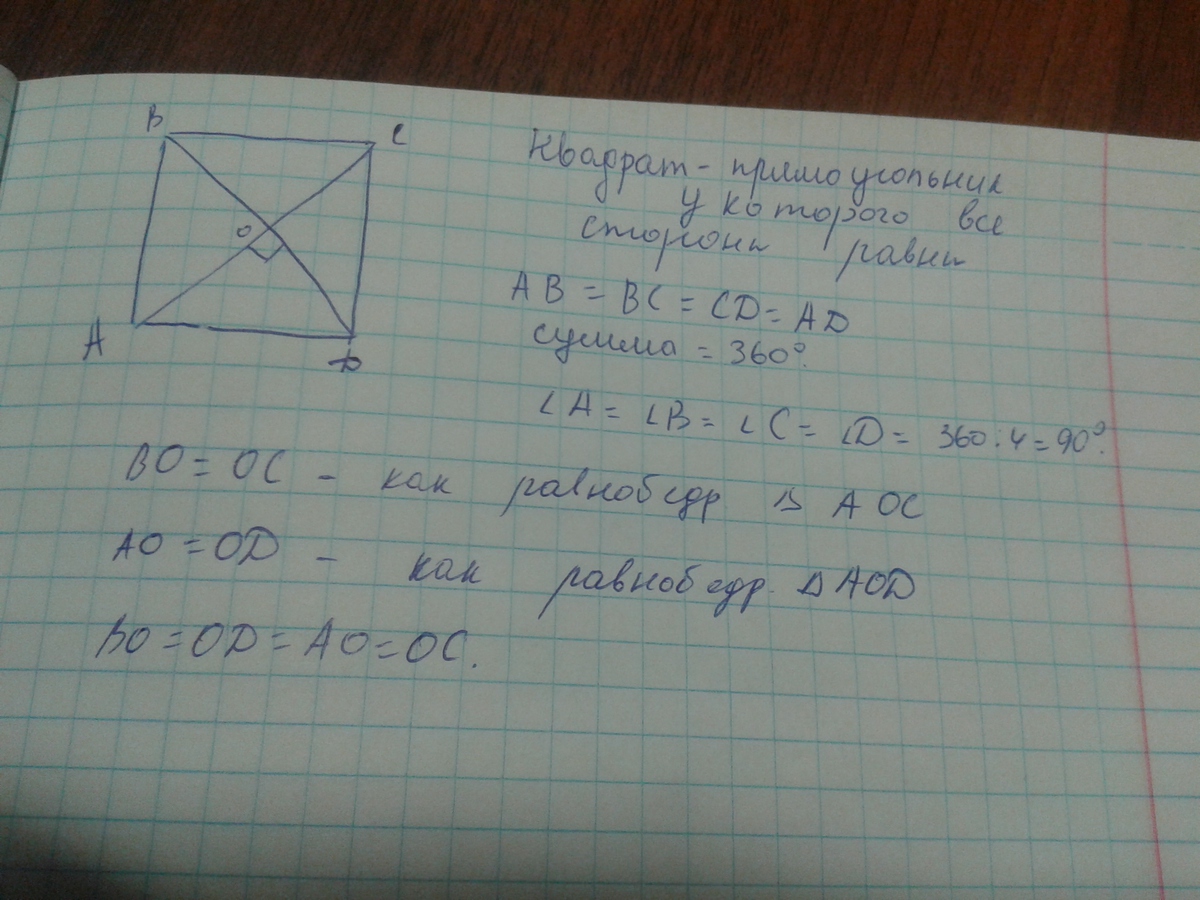 B
C
O
A
D
Квадрат - прямоугольник
у которого все
стороны равны
AB = BC = CD = AD
сумма = 360°.
∠A = ∠B = ∠C = ∠D = 360:4 = 90°.
BO = OC - как равнобедр Δ AOC
AO = OD - как равнобедр. Δ AOD
BO = OD = AO = OC.